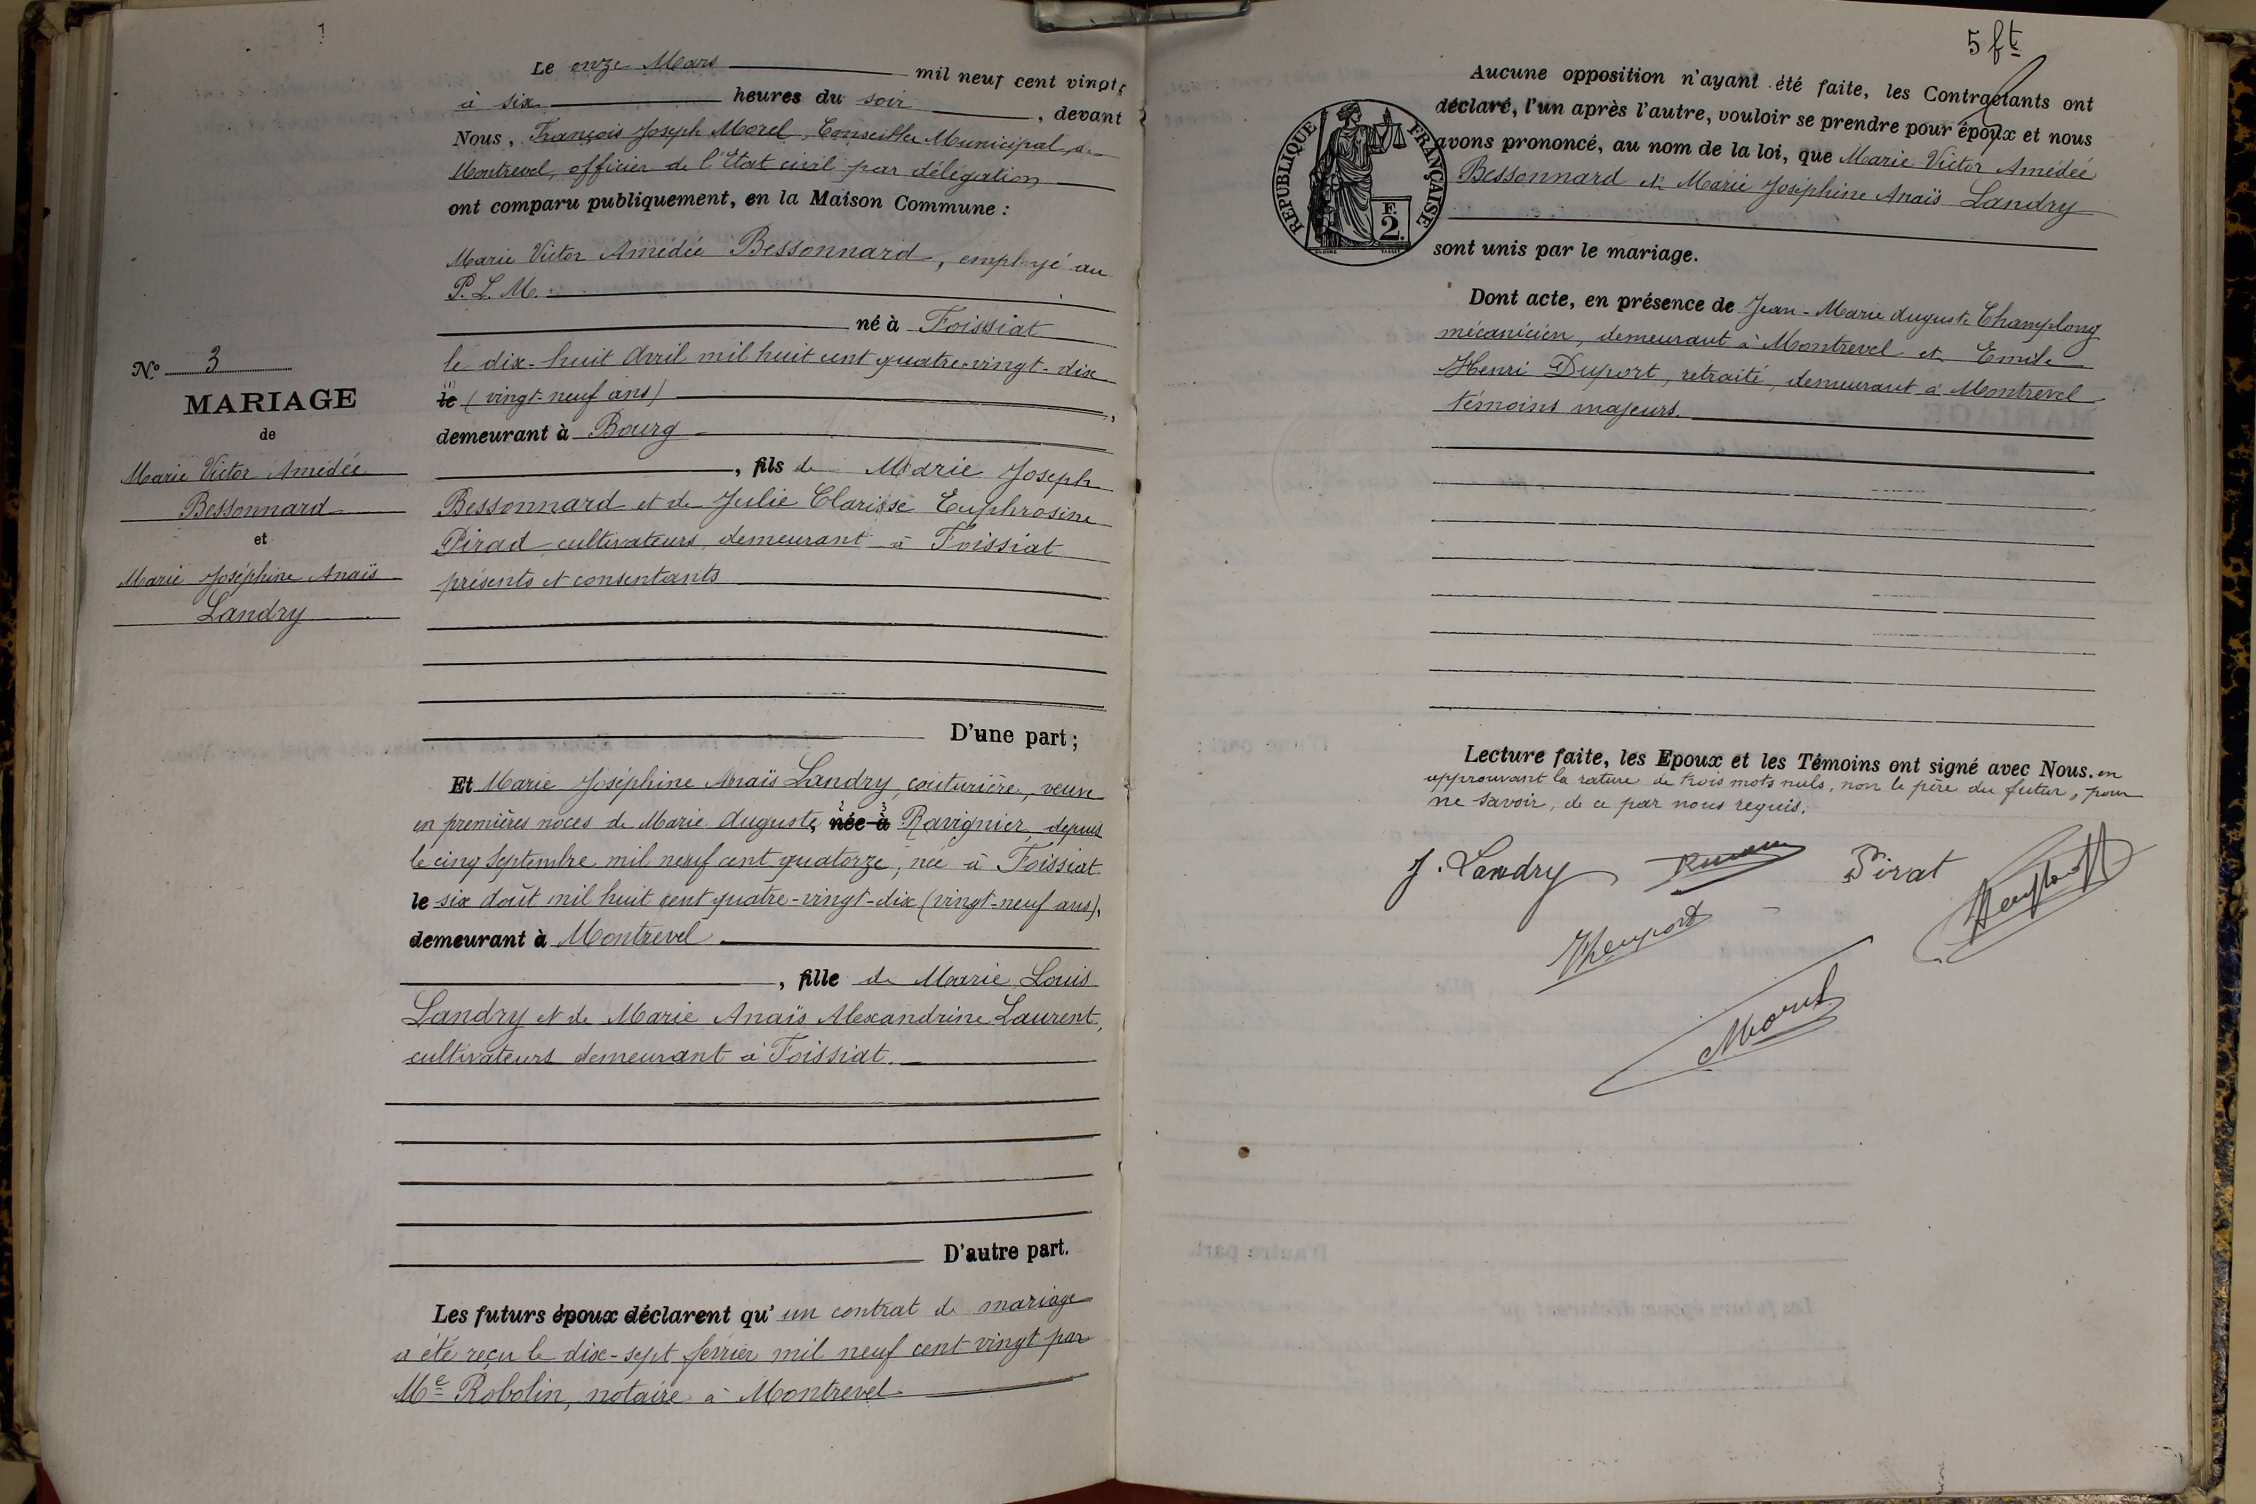 Le onze Mars mil neuf cent vingt,
à six heures du soir, devant
Nous, François Joseph Morel, Conseiller Municipal de
Montrevel, officier de l'Etat civil par délégation
ont comparu publiquement, en la Maison Commune :
Marie Victor Amédée Bessonnard, employé au
P. L. M.
né à Foissiat
le dix-huit Avril mil huit cent quatre-vingt-dix
le (vingt-neuf ans),
demeurant à Bourg
, fils de Marie Joseph
Bessonnard et de Julie Clarisse Euphrosine
Pirad cultivateurs demeurant à Foissiat
présents et consentants
D'une part ;
Et Marie Joséphine Anaïs Landry, couturière, veuve
en premières noces de Marie Auguste, 2 née 3 à Ravignier, depuis
le cinq Septembre mil neuf cent quatorze, née à Foissiat
le six Août mil huit cent quatre-vingt-dix (vingt-neuf ans),
demeurant à Montrevel
, fille de Marie Louis
Landry et de Marie Anaïs Alexandrine Laurent,
cultivateurs demeurant à Foissiat.
D'autre part.
Les futurs époux déclarent qu' un contrat de mariage
a été reçu le dix-sept février mil neuf cent vingt par
Me Robolin, notaire à Montrevel
No 3
MARIAGE
de
Marie Victor Amédée
Bessonnard
et
Marie Joséphine Anaïs
Landry
5 ft
Aucune opposition n'ayant été faite, les Contractants ont
déclaré, l'un après l'autre, vouloir se prendre pour époux et nous
avons prononcé, au nom de la loi, que Marie Victor Amédée
Bessonnard et Marie Joséphine Anaïs Landry
sont unis par le mariage.
RÉPUBLIQUE FRANÇAISE
F.
2.
Dont acte, en présence de Jean-Marie Auguste Champlong
mécanicien, demeurant à Montrevel et Emile
Henri Duport, retraité, demeurant à Montrevel
témoins majeurs.
Lecture faite, les Epoux et les Témoins ont signé avec Nous. en
approuvant la rature de trois mots nuls, non le père du futur, pour
ne savoir, de ce par nous requis.
J. Landry
Pirat
Morel